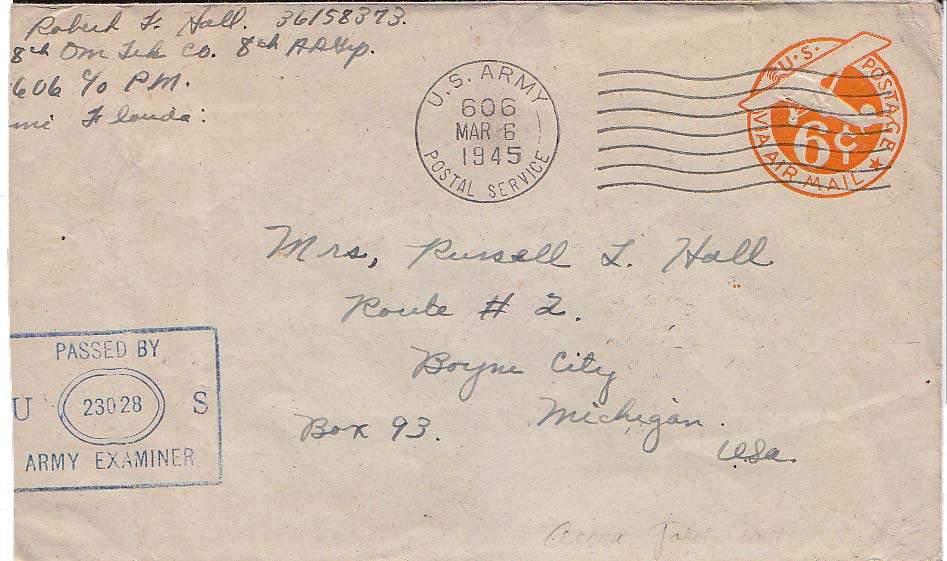 Robert F. Hall. 36158373.
8th Qm Trk Co. 8th AAGrp.
606 c/o P.M.
mi Florida:
U.S. ARMY
606
MAR 6
1945
POSTAL SERVICE
U.S. POSTAGE
6¢
VIA AIR MAIL
Mrs, Russell L. Hall
Route # 2.
Boyne City
Michigan.
Box 93.
USa.
PASSED BY
U 23028 S
ARMY EXAMINER